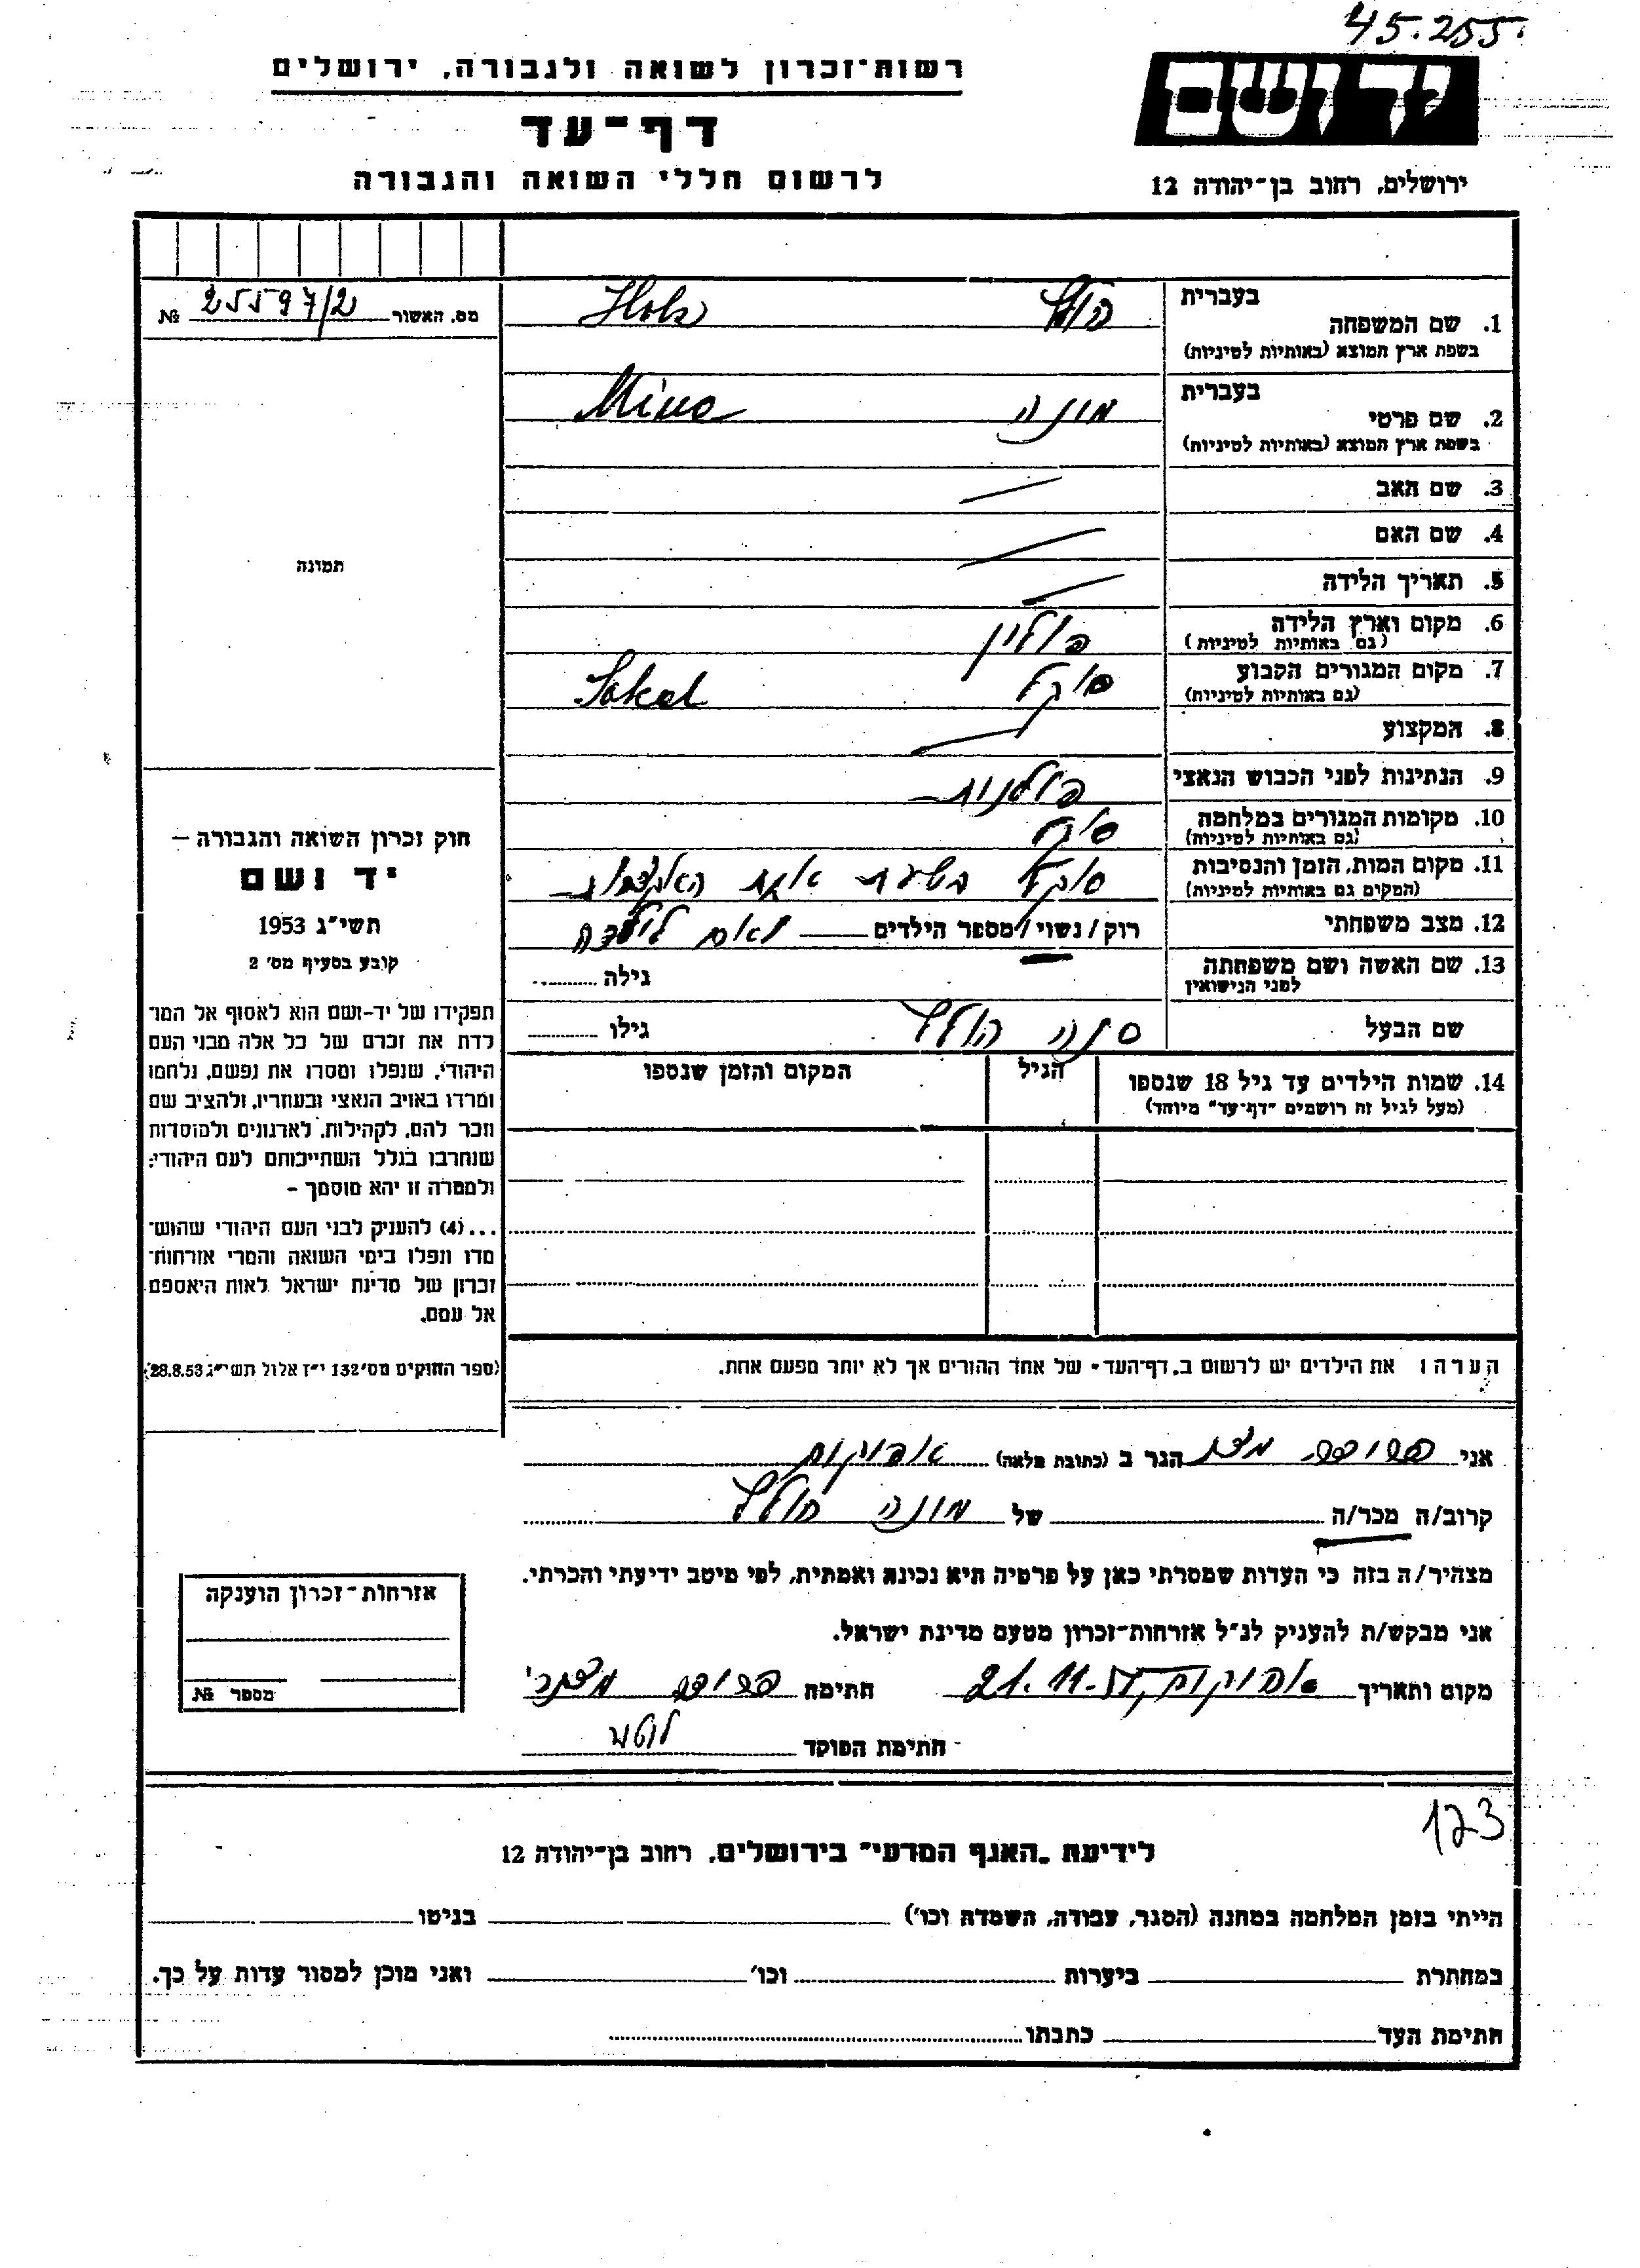 45.255.
רשות־זכרון לשואה ולגבורה, ירושלים
יד ושם
דף־עד
לרשום חללי השואה והגבורה
ירושלים, רחוב בן־יהודה 12
בעברית
1. שם המשפחה
בשפת ארץ המוצא (באותיות לטיניות)
מס. האשור 25597/2 №
בעברית
2. שם פרטי
בשפת ארץ המוצא (באותיות לטיניות)
Mina
3. שם האב
4. שם האם
5. תאריך הלידה
תמונה
6. מקום וארץ הלידה פולין
(גם באותיות לטיניות)
7. מקום המגורים הקבוע סוקל Sokal
(גם באותיות לטיניות)
8. המקצוע
9. הנתינות לפני הכבוש הנאצי פולנית
10. מקומות המגורים במלחמה סוקל
(גם באותיות לטיניות)
11. מקום המות, הזמן והנסיבות סוקל בשעת אחת האקציות
(המקום גם באותיות לטיניות)
12. מצב משפחתי רוק/נשוי/מספר הילדים ואם לילדה
13. שם האשה ושם משפחתה גילה
לפני הנישואין
שם הבעל גילו
14. שמות הילדים עד גיל 18 שנספו הגיל המקום והזמן שנספו
(מעל לגיל זה רושמים "דף־עד" מיוחד)
חוק זכרון השואה והגבורה –
יד ושם
תשי"ג 1953
קובע בסעיף מס' 2
תפקידו של יד־ושם הוא לאסוף אל המו־
לדת את זכרם של כל אלה מבני העם
היהודי, שנפלו ומסרו את נפשם, נלחמו
ומרדו באויב הנאצי ובעוזריו, ולהציב שם
וזכר להם, לקהילות, לארגונים ולמוסדות
שנחרבו בגלל השתייכותם לעם היהודי;
ולמטרה זו יהא מוסמך –
...(4) להעניק לבני העם היהודי שהוש־
מדו ונפלו בימי השואה והמרי אזרחות־
זכרון של מדינת ישראל לאות היאספם
אל עמם.
(ספר החוקים מס' 132 י"ז אלול תשי"ג 28.8.53)
הערה: את הילדים יש לרשום ב„דף־העד" של אחד ההורים אך לא יותר מפעם אחת.
אני הגר ב (כתובת מלאה)
קרוב/ה מכר/ה של
מצהיר/ה בזה כי העדות שמסרתי כאן על פרטיה היא נכונה ואמתית, לפי מיטב ידיעתי והכרתי.
אני מבקש/ת להעניק לנ"ל אזרחות־זכרון מטעם מדינת ישראל.
מקום ותאריך 21.11. חתימה
חתימת הפוקד
אזרחות־זכרון הוענקה
מספר №
123
לידיעת „האגף המדעי" בירושלים, רחוב בן־יהודה 12
הייתי בזמן המלחמה במחנה (הסגר, עבודה, השמדה וכו') בגיטו
במחתרת ביערות וכו' ואני מוכן למסור עדות על כך.
חתימת העד כתבתו